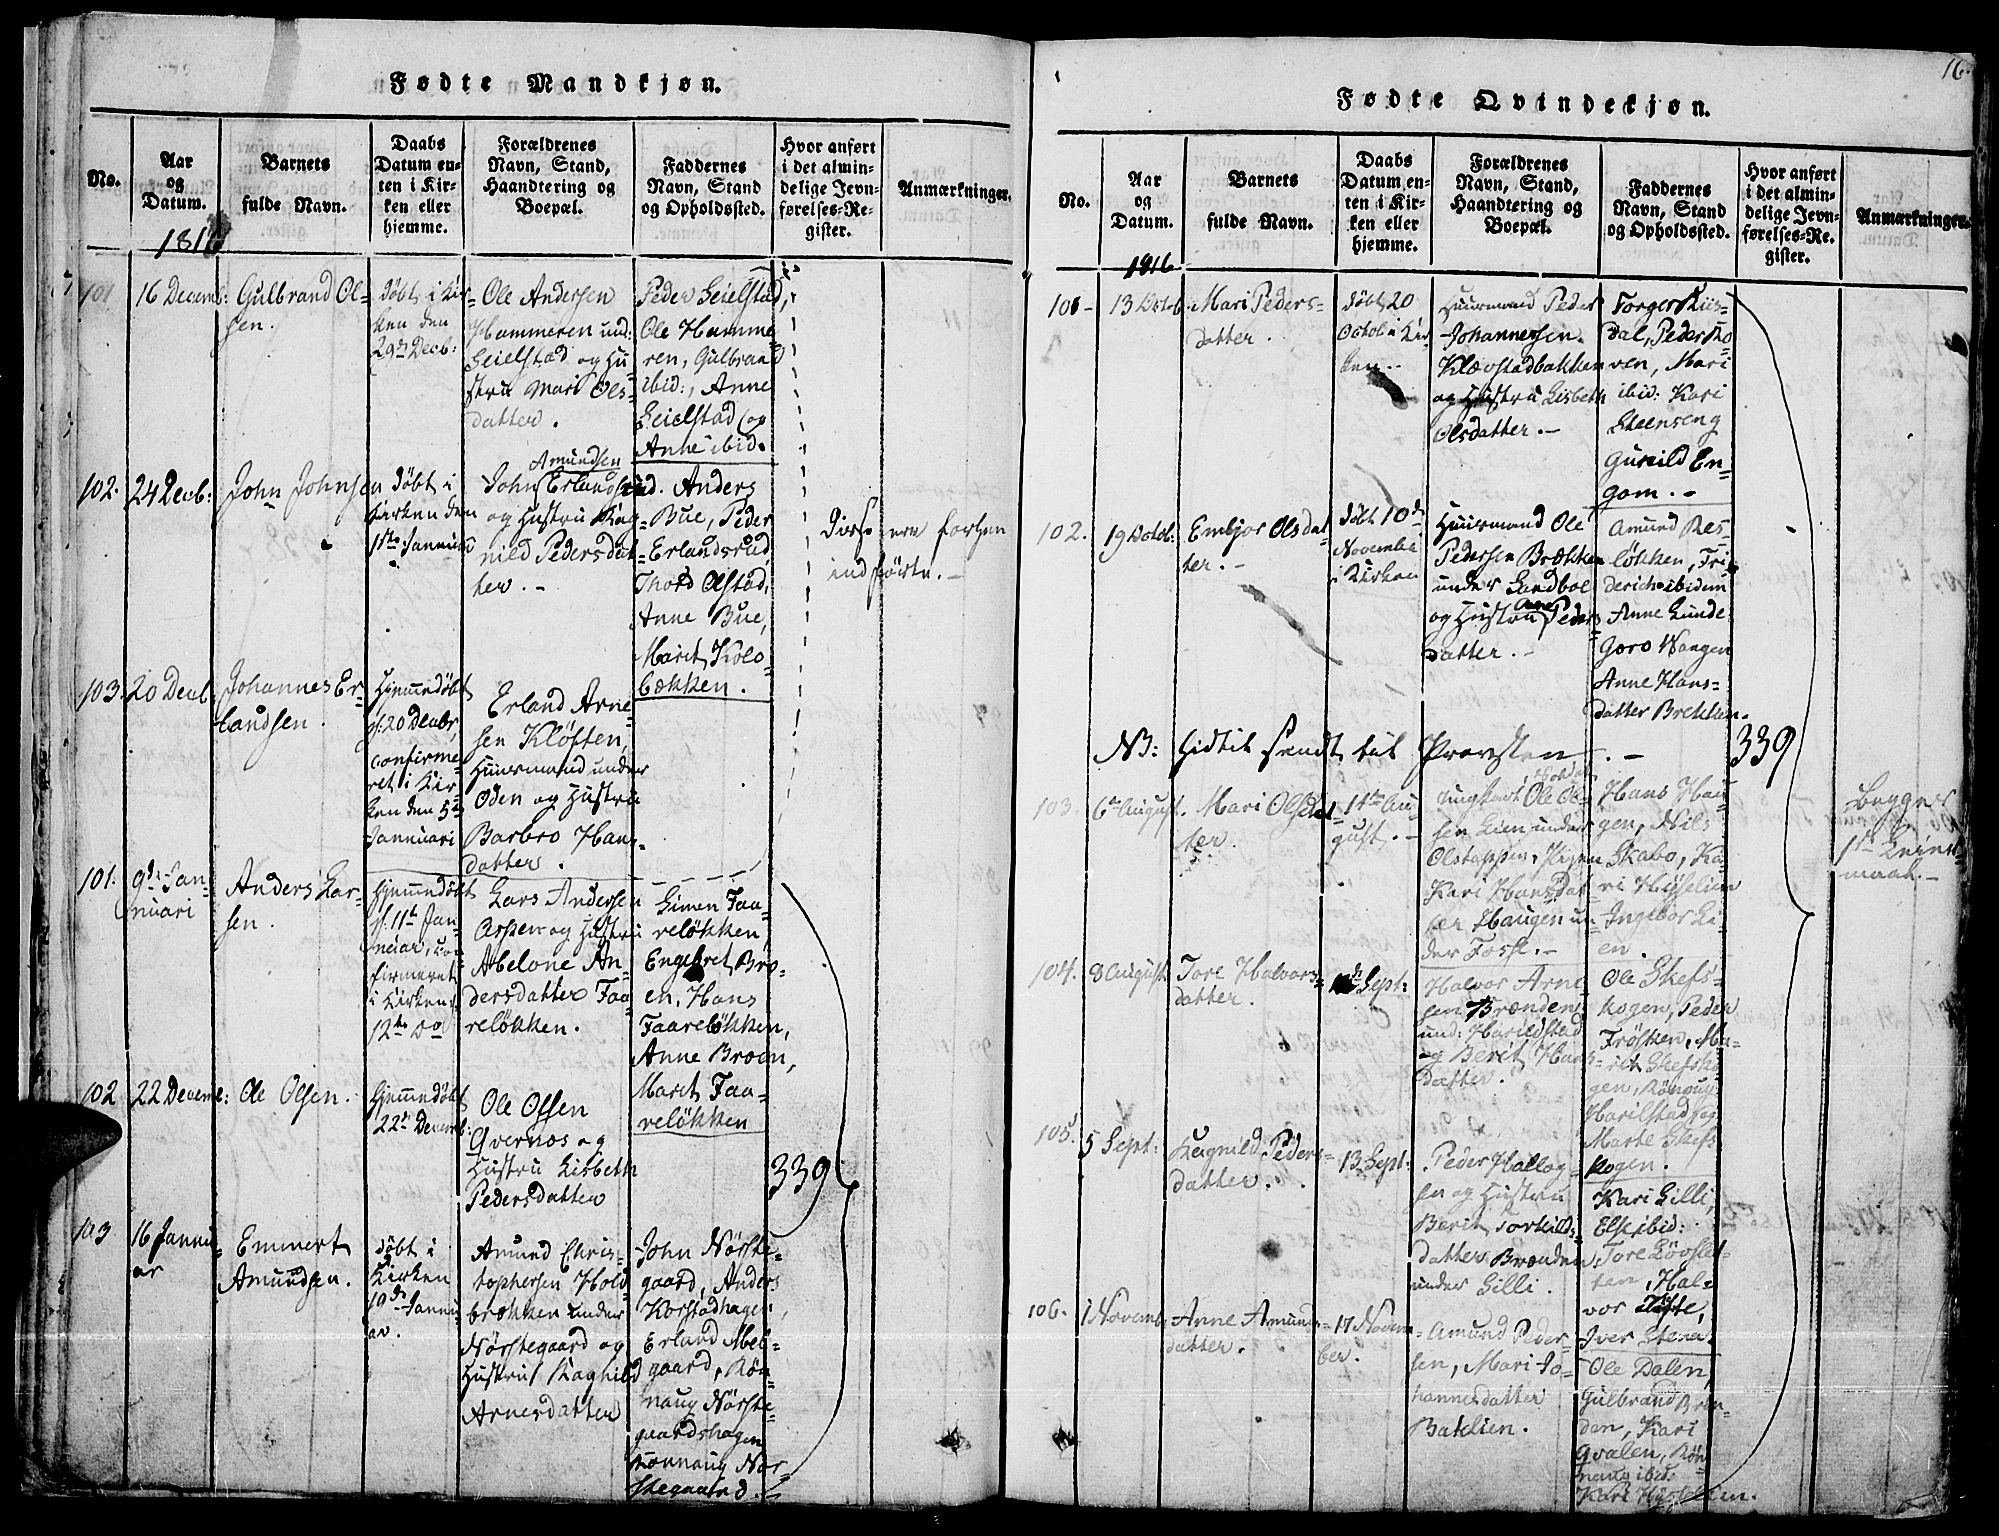 16.
Fødte Mandkjøn.
No.
Aar
og
Datum.
Barnets
fulde Navn.
Daabs
Datum en-
ten i Kir-
ken eller
hjemme.
Forældrenes
Navn, Stand,
Haandtering og
Boepæl.
Faddernes
Navn, Stand
og Opholdssted.
Hvor anført
i det almin-
delige Jevn-
førelses-Re-
gister.
Anmærkninger.
1816
101
16 Decemb:
Gulbrand Ol-
sen.
døbt i Kir-
ken den
29de Decb:
Ole Andersen
Hammeren und:
Seielstad og Hu-
stru Mari Ols-
datter.
Peder Seielstad,
Ole Hamme-
ren, Gulbrand
ibid:, Anne
Seielstad og
Anne ibid.
102.
24 Decb:
John Johnsen
døbt i
Kirken den
1ste Januari
Amundsen
John Erlandsrud.
og Hustru Rag-
nild Pedersdat-
ter. -
Anders
Bue, Peder
Erlandsrud,
Thord Olstad,
Anne Bue,
Marit Kolo-
bækken.
Disse ere forhen
indførte. -
103.
20 Decb.
Johannes Er-
landsen.
Hjemmedøbt
d. 20 Decbr,
confirme-
ret i Kir-
ken den 5te
Januari
Erland Arne-
sen Kløften,
Huusmand under
Oden og Hustru
Barbro Hans-
datter.
101.
9de Jan-
nuari
Anders Lar-
sen.
Hjemmedøbt
d. 11te Jan-
nuar, con-
firmeret
i Kirken
12te do
Lars Andersen
Aspen og Hustru
Abelone An-
dersdatter Faa-
reløkken.
Simen Faa-
reløkken,
Engebret Bro-
en, Hans
Faareløkken,
Anne Broen,
Marit Faa-
reløkken
102
22 Decemb:
Ole Olsen.
Hjemmedøbt
22de Decemb:
Ole Olsen
Qvernos og
Hustru Lisbeth
Pedersdatter
339
103
16 Jannu-
ar
Emmert
Amundsen.
døbt i
Kirken
19de Jannu-
ar.
Amund Chris-
tophersen Hold-
brækken under
Nørstegaard og
Hustru Raghild
Arnesdatter
John Nørste-
gaard, Anders
Korstadhagen,
Erland Mel-
gaard, Røn-
naug Nørste-
gaardshagen
Rønnaug Nør-
stegaard. -
Fødte Qvindekjøn.
No.
Aar
og
Datum.
Barnets
fulde Navn.
Daabs
Datum en-
ten i Kir-
ken eller
hjemme.
Forældrenes
Navn, Stand,
Haandtering og
Boepæl.
Faddernes
Navn, Stand
og Opholdssted.
Hvor anført
i det almin-
delige Jevn-
førelses-Re-
gister.
Anmærkninger.
1816
101 -
13 Octob.
Mari Peders-
datter.
døbt 20
Octob. i Kir-
ken. -
Huusmand Peder
Johannessen
Kløvstadbakken
og Hustru Lisbeth
Olsdatter. -
Torger Kiis-
dal, Peder Mo-
ren, Mari
ibid: Kari
Steenseng
Gunild En-
gom. -
102.
19 Octob:
Embjor Olsdat-
ter. -
døbt 10de
November
i Kirken
Huusmand Ole
Pedersen Brækken
under Sandboe
og Hustru Anne Peders-
datter. -
Amund Res-
løkken, Fri-
derich ibidem
Anne Lunde
Goro Wangen
Anne Hans-
datter Brekken.
NB: hidtil sendt til Provsten. -
339
103.
6te August.
Mari Olsdat-
ter.
11te Au-
gust. -
Ungkarl Ole Ol-
sen Lien under
Olstappen, Pigen
Kari Hansdat-
ter Haugen un-
der Fosse. -
Hans Hau-
gen, Nils
Skabo, Ka-
ri Hyselien
Ingebor Li-
en.
Begges
1ste Leiers-
maal. -
104.
8 August.
Tore Halvors-
datter.
Sept:
Halvor Arne-
sen Brænden
und: Harildstad
og Berit Hans-
datter.
Ole Skefs-
kogen, Peder
Frøsten, Ma-
rit Skefsko-
gen, Rønnug
Harilstad og
Marte Skefs-
kogen.
105.
5 Sept:
Ragnild Peders-
datter.
13 Sept:
Peder Hallog-
sen og Hustru
Berit Torkilds-
datter Brænden
under Silli.
Kari Silli,
Else ibid:
Tore Løvslet-
ten, Hal-
vor Tofte,
Iver Stena
106.
1 Novemb:
Anne Amunds-
datter.
17 Novem-
ber.
Amund Peder-
sen, Mari Jo-
hannesdatter
Baklien.
Ole Dalen,
Gulbrand Bræn-
den, Kari
Qvalen, Røn-
naug ibid: